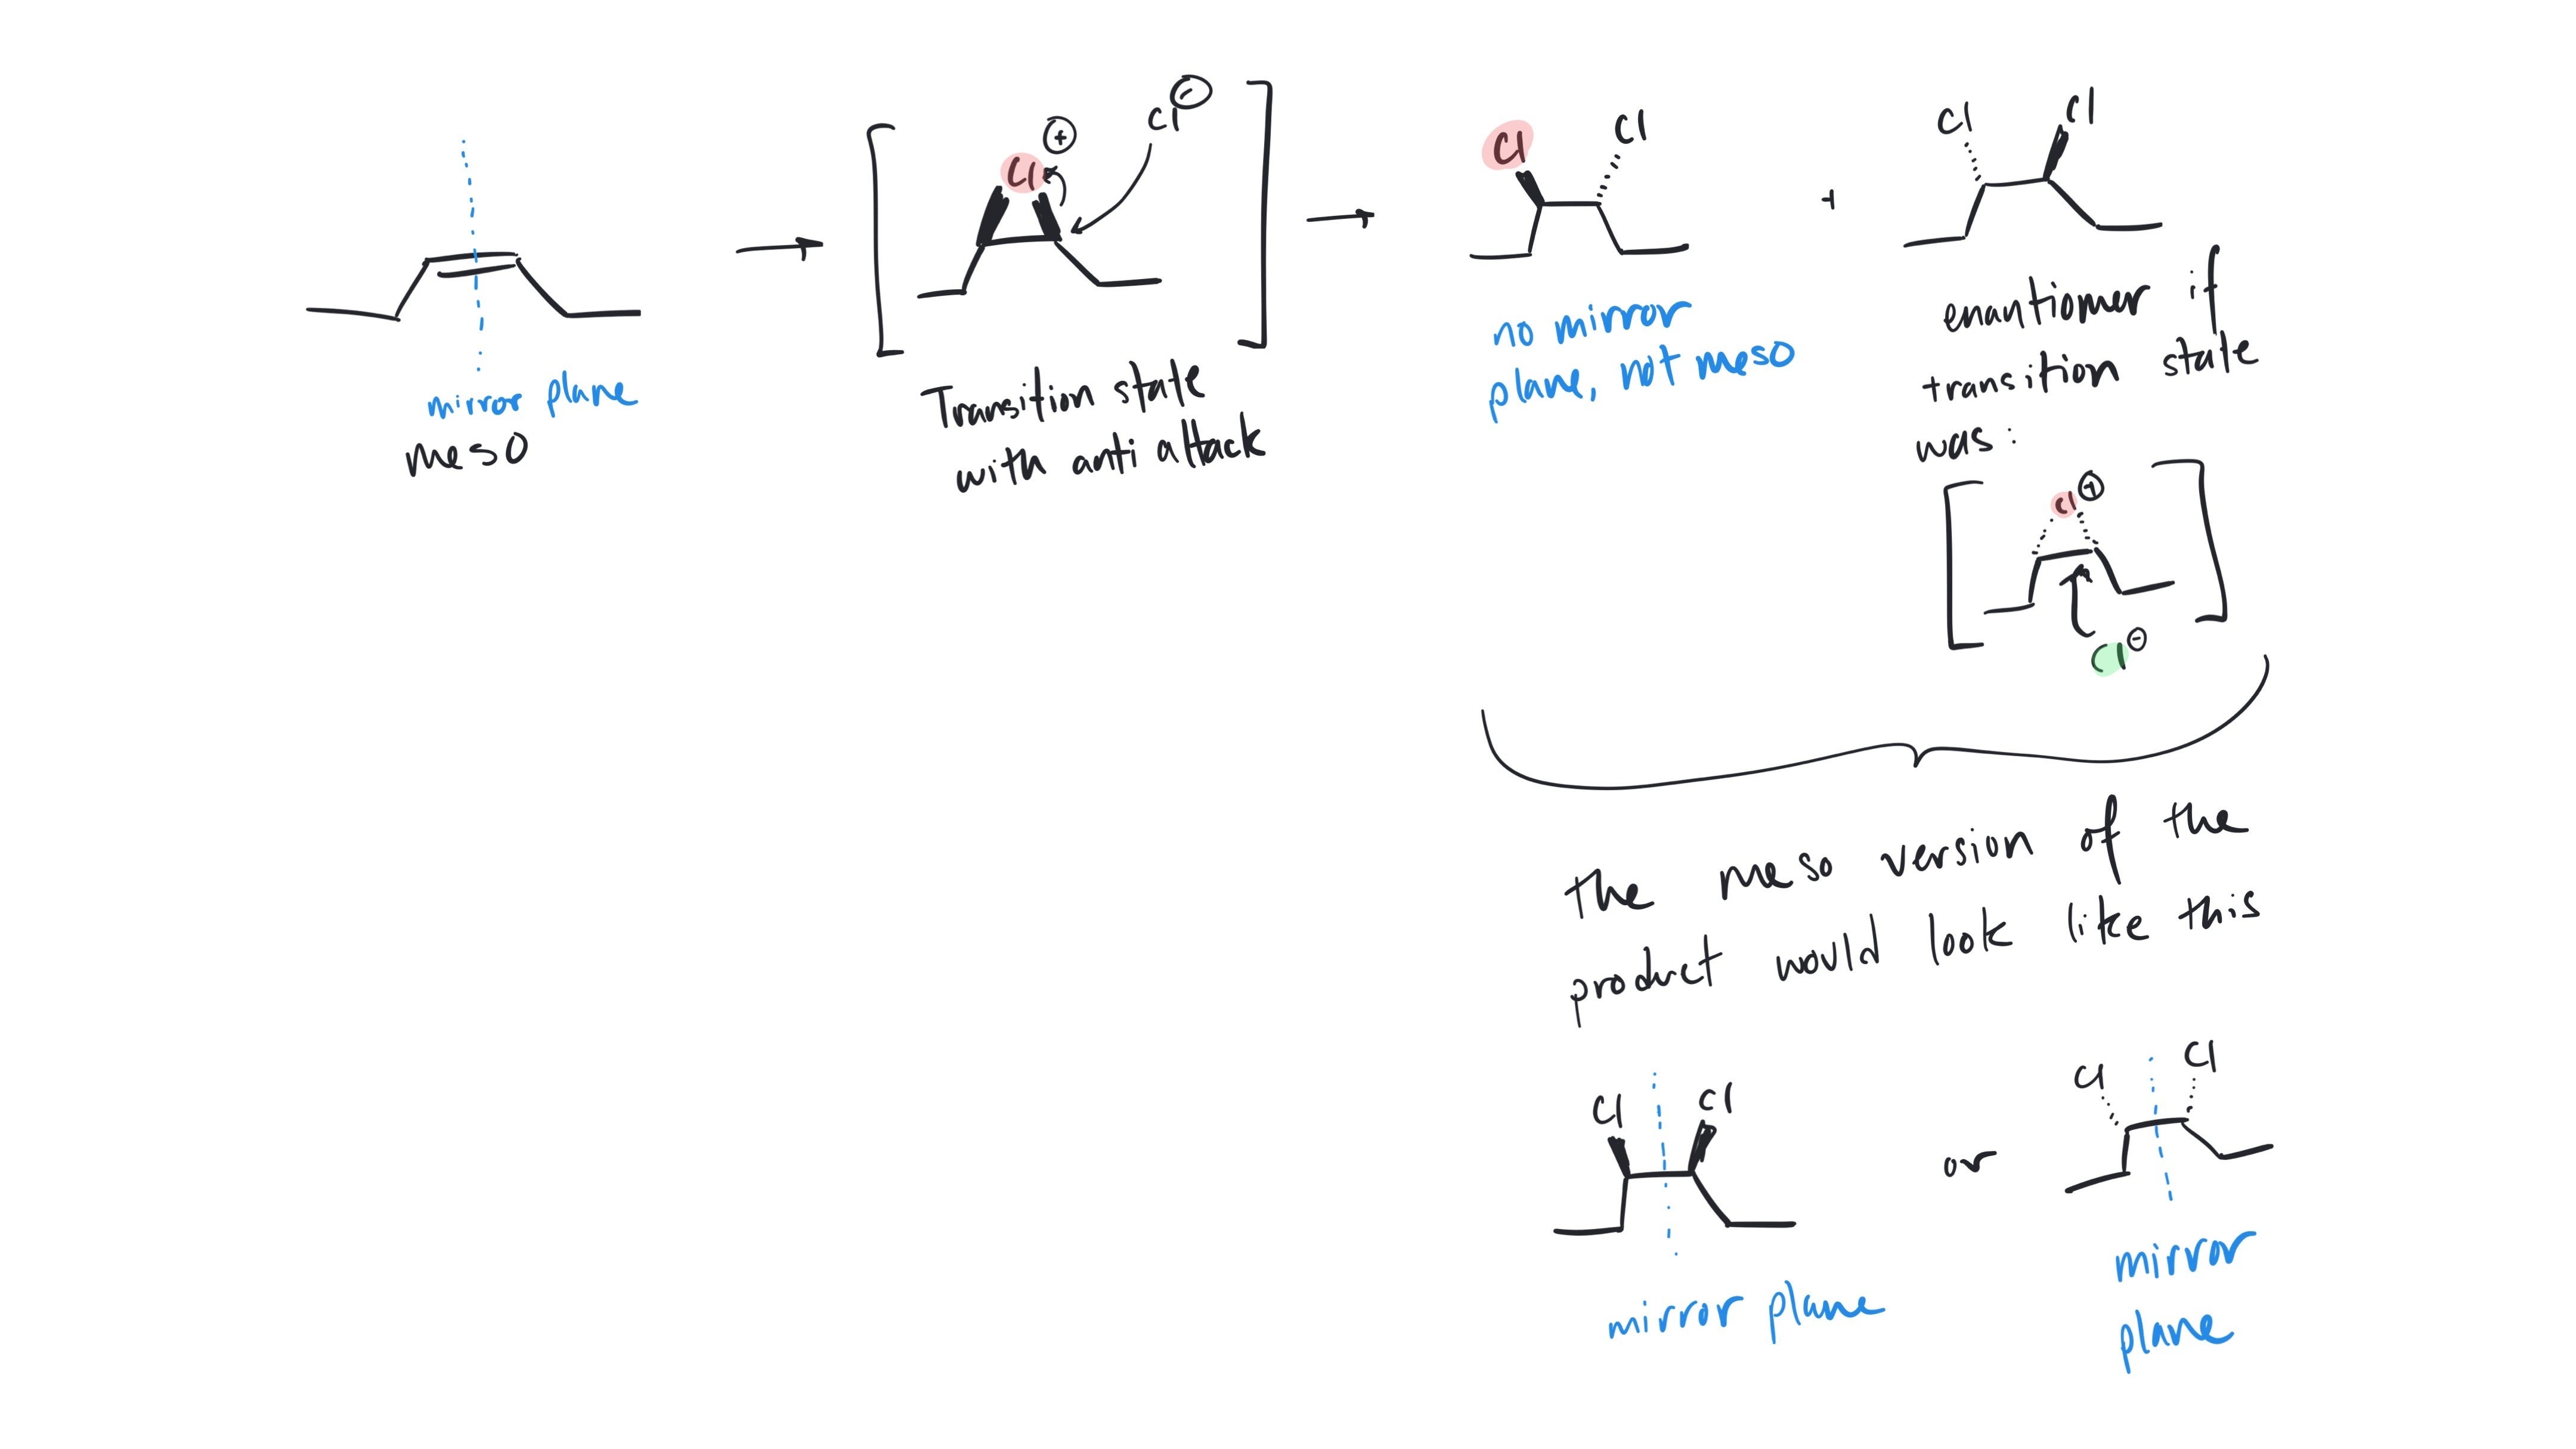 mirror plane
meso
Cl
⊕
Cl
⊖
Transition state
with anti attack
Cl
Cl
no mirror
plane, not meso
+
Cl
Cl
enantiomer if
transition state
was:
Cl
⊕
Cl
⊖
the meso version of the
product would look like this
Cl
Cl
mirror plane
or
Cl
Cl
mirror
plane